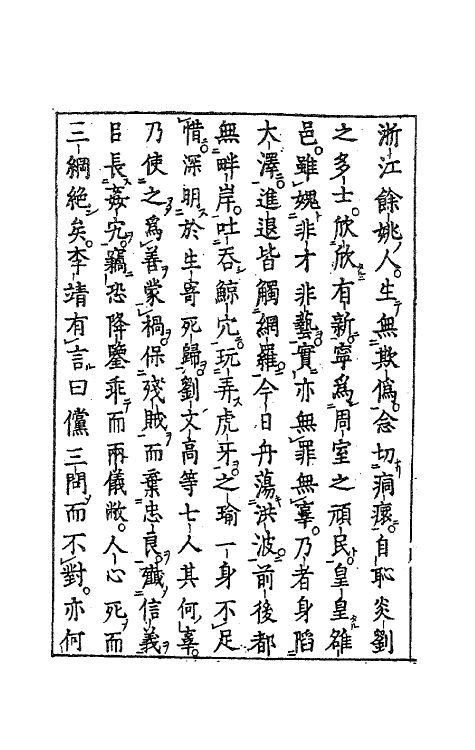 浙江餘姚人。生無欺偽。念切痌瘝。自恥炎劉
之多士。欣欣有新。寧為周室之頑民。皇皇雒
邑。雖媿非才非藝。實亦無罪無辜。乃者身陷
大澤。進退皆觸網羅。今日舟蕩洪波。前後都
無畔岸。吐吞鯨穴。玩弄虎牙。之瑜一身不足
惜。深明於生寄死歸。劉文高等七人其何辜。
乃使之為善蒙禍。保殘賊而棄忠良。殲信義
㠯長姦宄。竊恐降鑒乖而兩儀敝。人心死而
三綱絕矣。李靖有言曰儻三問而不對。亦何